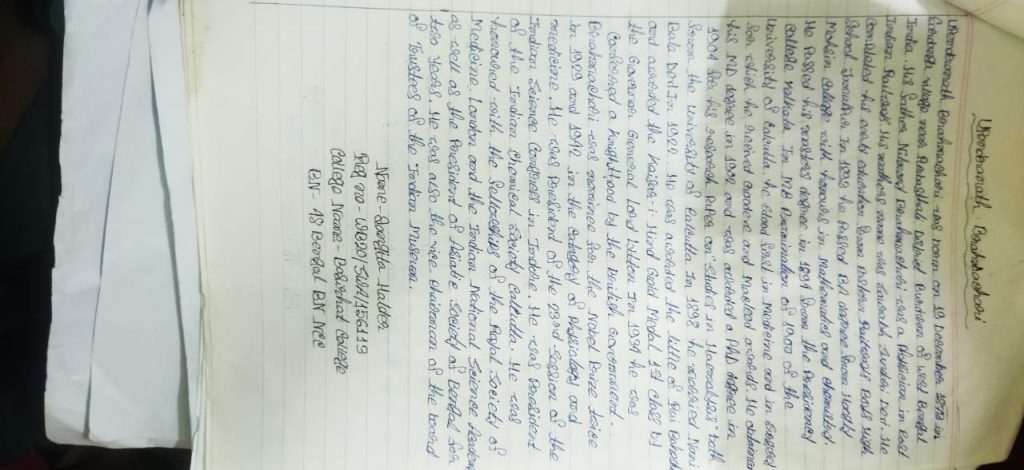 Upendranath Brahmachari
Upendranath Brahmachari was born on 19 December 1873 in
village near District Burdwan of West Bengal
India. His father Nilmony Brahmachari was a Physician in East
Indian Railways. His mother's name was Saurabh Sundari Devi. He
Completed his early education from Eastern Railways Boys High
School Jamalpur. In 1893 he Passed BA degree from Hooghly
Mohsin College with honours in Mathematics and chemistry
He Passed his masters degree in 1894 from the Presidency
college Kolkata. In MB Examination of 1900 of the
University of Calcutta, he stood first in Medicine and in Surgery
for which he received Goodeve and Macleod awards. He obtained
his MD degree in 1902 and was awarded a PhD degree in
1904 for his research Paper on "studies in Haemolysis" both
from the University of Calcutta. In 1898 he married Nani
Bala Devi. In 1924 He was awarded the title of Rai Bahadur
and awarded the Kaisar-i-Hind Gold Medal 1st class by
the Governor General Lord Lytton. In 1934 he was
Conferred a Knighthood by the British Government.
Brahmachari was nominee for the Nobel Prize twice
in 1929 and 1942 in the category of Physiology and
medicine. He was President of the 23rd Session of the
Indian Science Congress in Indore. He was President
of the Indian Chemical Society Calcutta. He was
honoured with the fellowship of the Royal Society of
Medicine London and the Indian National Science Academy
as well as the President of Asiatic Society of Bengal for
two Years. He was also the vice chairman of the board
of Trustees of the Indian Museum.
Name- Sangita Halder
Reg no- WB20/SWA/156119
College Name- Basirhat College
BN- 48 Bengal BN NCC